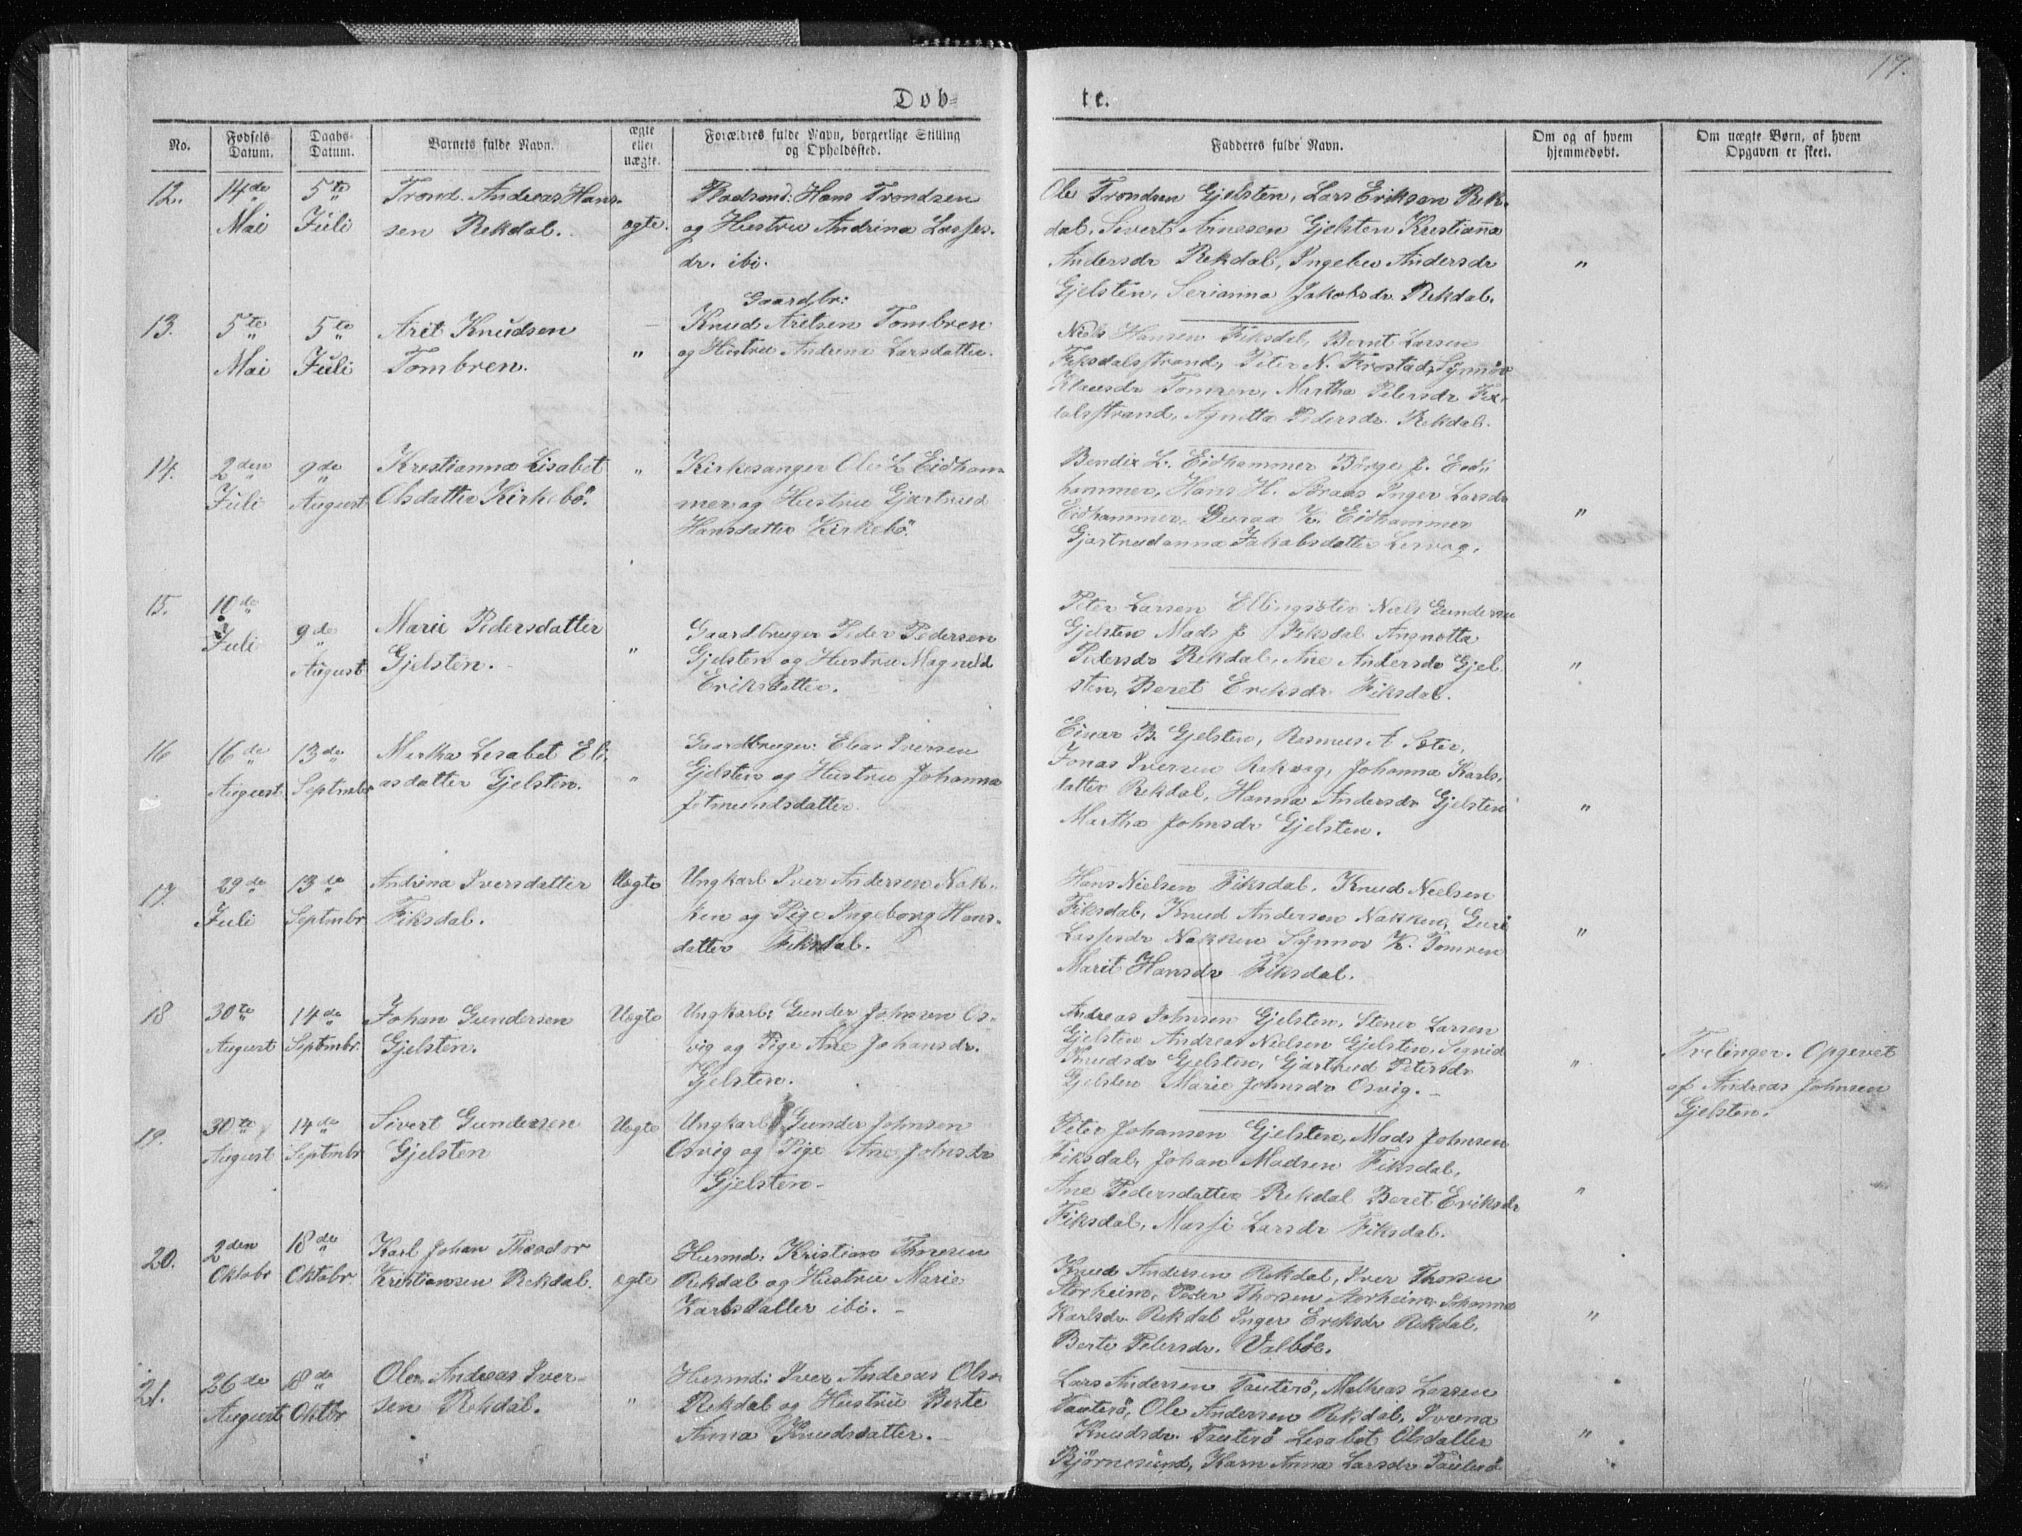 17.
Døb-
te.
No.
Fødsels-
Datum.
Daabs-
Datum.
Barnets fulde Navn.
ægte
eller
uægte.
Forældres fulde Navn, borgerlige Stilling
og Opholdssted.
Fadderes fulde Navn.
Om og af hvem
hjemmedøbt.
Om uægte Børn, af hvem
Opgaven er skeet.
12.
14de
Mai
5te
Juli
Trond Andreas Hans-
sen Rekdal.
ægte.
Hans Trondsen
og Hustru Andrina Lasses-
dr. ibi.
Ole Trondsen Gjelsten, Lars Eriksen Rek-
dal, Sivert Arnesen Gjelsten Kristianna
Andersdr Rekdal, Ingebor Andersdr
Gjelsten, Serianna Jakobsdr Rekdal.
"
13.
5te
Mai
5te
Juli
Arit Knudsen
Tombren.
"
Gaardbr:
Knud Aritsen Tombren
og Hustru Andrina Larsdatter.
Niels Hansen Fiksdal, Bernt Larsen
Fiksdalsstrand, Peter N. Frostad, Synnöv
Klausdr Tomren, Martha Petersdr Fix-
dalsstrand, Agnetta Pedersdr Rekdal.
14.
2den
Juli
9de
August
Kristianna Lisabet
Olsdatter Kirkebö.
"
Kirkesanger Ole L. Eidham-
mer og Hustru Gjertrud
Hansdatter Kirkebö.
Bendix L. Eidhammer Börge J. Eid-
hammer, Hans H. Inger Larsdr
Eidhammer, K. Eidhammer
Gjertrudanna Jakobsdatter
"
15.
10de
Juli
9de
August
Marie Pedersdatter
Gjelsten.
"
Gaardbruger Peder Pedersen
Gjelsten og Hustru Magnild
Eriksdatter.
Peter Larsen Niels Gundersen
Gjelsten Mads J. Fiksdal Angnetta
Pedersdr Rekdal, Ane Andersdr Gjel-
sten, Beret Eriksdr Fiksdal.
"
16
16de
August
13de
Septmbr
Martha Lisabet Eli-
asdatter Gjelsten.
"
Gaardbruger: Elias Iversen
Gjelsten og Hustru Johanna
Jetmundsdatter.
Einar B. Gjelsten, Rasmus A
Jonas Iversen Rekvag, Johanna Karls-
datter Rekdal, Hanna Andersdr Gjelsten
Martha Johnsdr Gjelsten.
"
17.
29de
Juli
13de
Septmbr
Andrina Iversdatter
Fiksdal.
Uægte
Ungkarl Iver Andersen Nak-
ken og Pige Ingeborg Hans-
datter Fiksdal.
Hans Nielsen Fiksdal, Knud Nielsen
Fiksdal, Knud Andersen Nakken, Guri
Lassesdr Nakken Synnov K. Tomren
Marit Hansdr Fiksdal.
"
18
30te
August
14de
Septmbr.
Johan Gundersen
Gjelsten.
Uægte
Ungkarl: Gunder Johnsen Os-
vig og Pige Ane Johansdr.
Gjelsten.
Andreas Johnsen Gjelsten, Stener Larsen
Gjelsten Andreas Nielsen Gjelsten, Signid
Knudsdr Gjelsten, Gjertrud Petersdr
Gjelsten Marie Johnsdr Osvig.
"
Trelinger. Opgevet
af Andreas Johnsen
Gjelsten.
19.
30te
August
14de
Septmbr
Sivert Gundersen
Gjelsten
Uægte
Ungkarl Gunder Johnsen
Osvig og Pige Ane Johnsdr
Gjelsten
Peter Johansen Gjelsten, Mads Johnsen
Fiksdal, Johan Madsen Fiksdal,
Ane Pedersdatter Rekdal Beret Eriksdr
Fiksdal, Massi Larsdr Fiksdal.
"
20.
2den
Oktobr
18de
Oktobr.
Karl Johan Theodor
Kristiansen Rekdal.
ægte
Husmd. Kristian Thoresen
Rekdal og Hustru Marie
Karlsdatter ibi.
Knud Andersen Rekdal, Iver Thorsen
Storheim, Peder Thorsen Storheim, Johanna
Karlsdr. Rekdal Inger Eriksdr Rekdal,
Berte Petersdr. Valböe.
"
21.
26de
August
18de
Oktbr
Ole Andreas Iver-
sen Rekdal.
"
Husmd: Iver Andreas Olsen
Rekdal og Hustru Berte
Anna Knudsdatter.
Lars Andersen Tauterö, Mathias Larsen
Tauterö, Ole Andersen Rekdal, Ivrena
Knudsdr. Tauterö Lisabet Olsdatter
Björnesund, Karn Anna Larsdr Tauterö
"